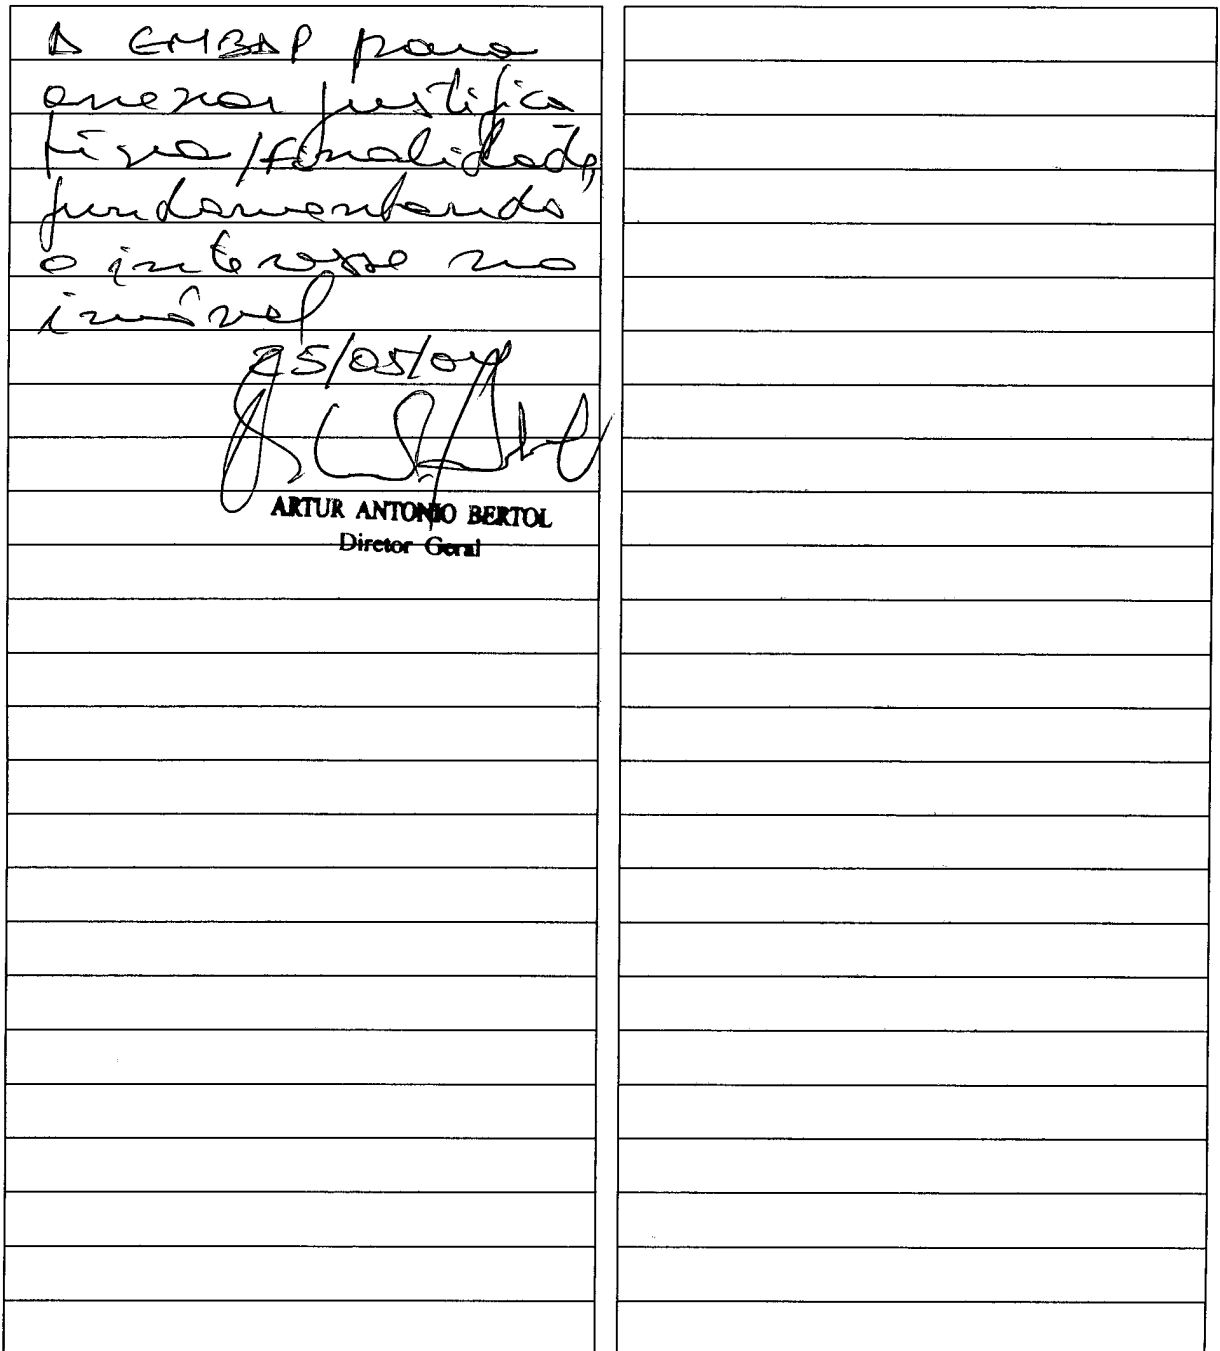 A EMBAP para
anexar justifica
tiva/finalidade,
fundamentando
o interesse no
imóvel
25/05/04
ARTUR ANTONIO BERTOL
Diretor Geral